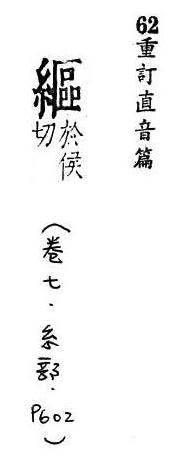 62重訂直音篇
䌔於侯切
(卷七.糸部.P602)